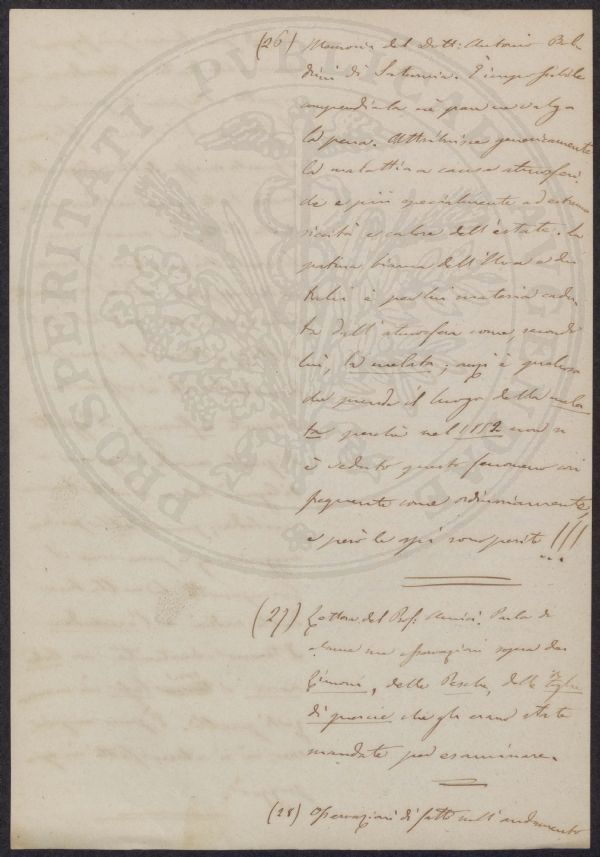 (26) Memoria del Dott: Antonio Bal
dini di Saturnia. È impossibile
compendiarla nè pare ne valga
la pena. Attribuisce genericamente
la malattia a cause atmosferi
che e più specialmente ad estrema
siccità e calore dell'estate. La
patina bianca dell'Uva e dei
tralci è per lui materia cadu
ta dall'atmosfera come, secondo
lui, la melata; anzi è qualcosa
che prende il luogo della mela
ta perchè nel 1852 non si
è veduto questo fenomeno così
frequente come ordinariamente,
e però le api sono perite !!!
(27) Lettera del Prof. Amici. Parla di
alcune sue osservazioni sopra dei
Limoni, delle Pesche, delle foglie
di quercie che gli erano state
mandate per esaminare.
(28) Osservazioni di fatto sull'andamento
PROSPERITATI PVBLICAE AVGENDAE